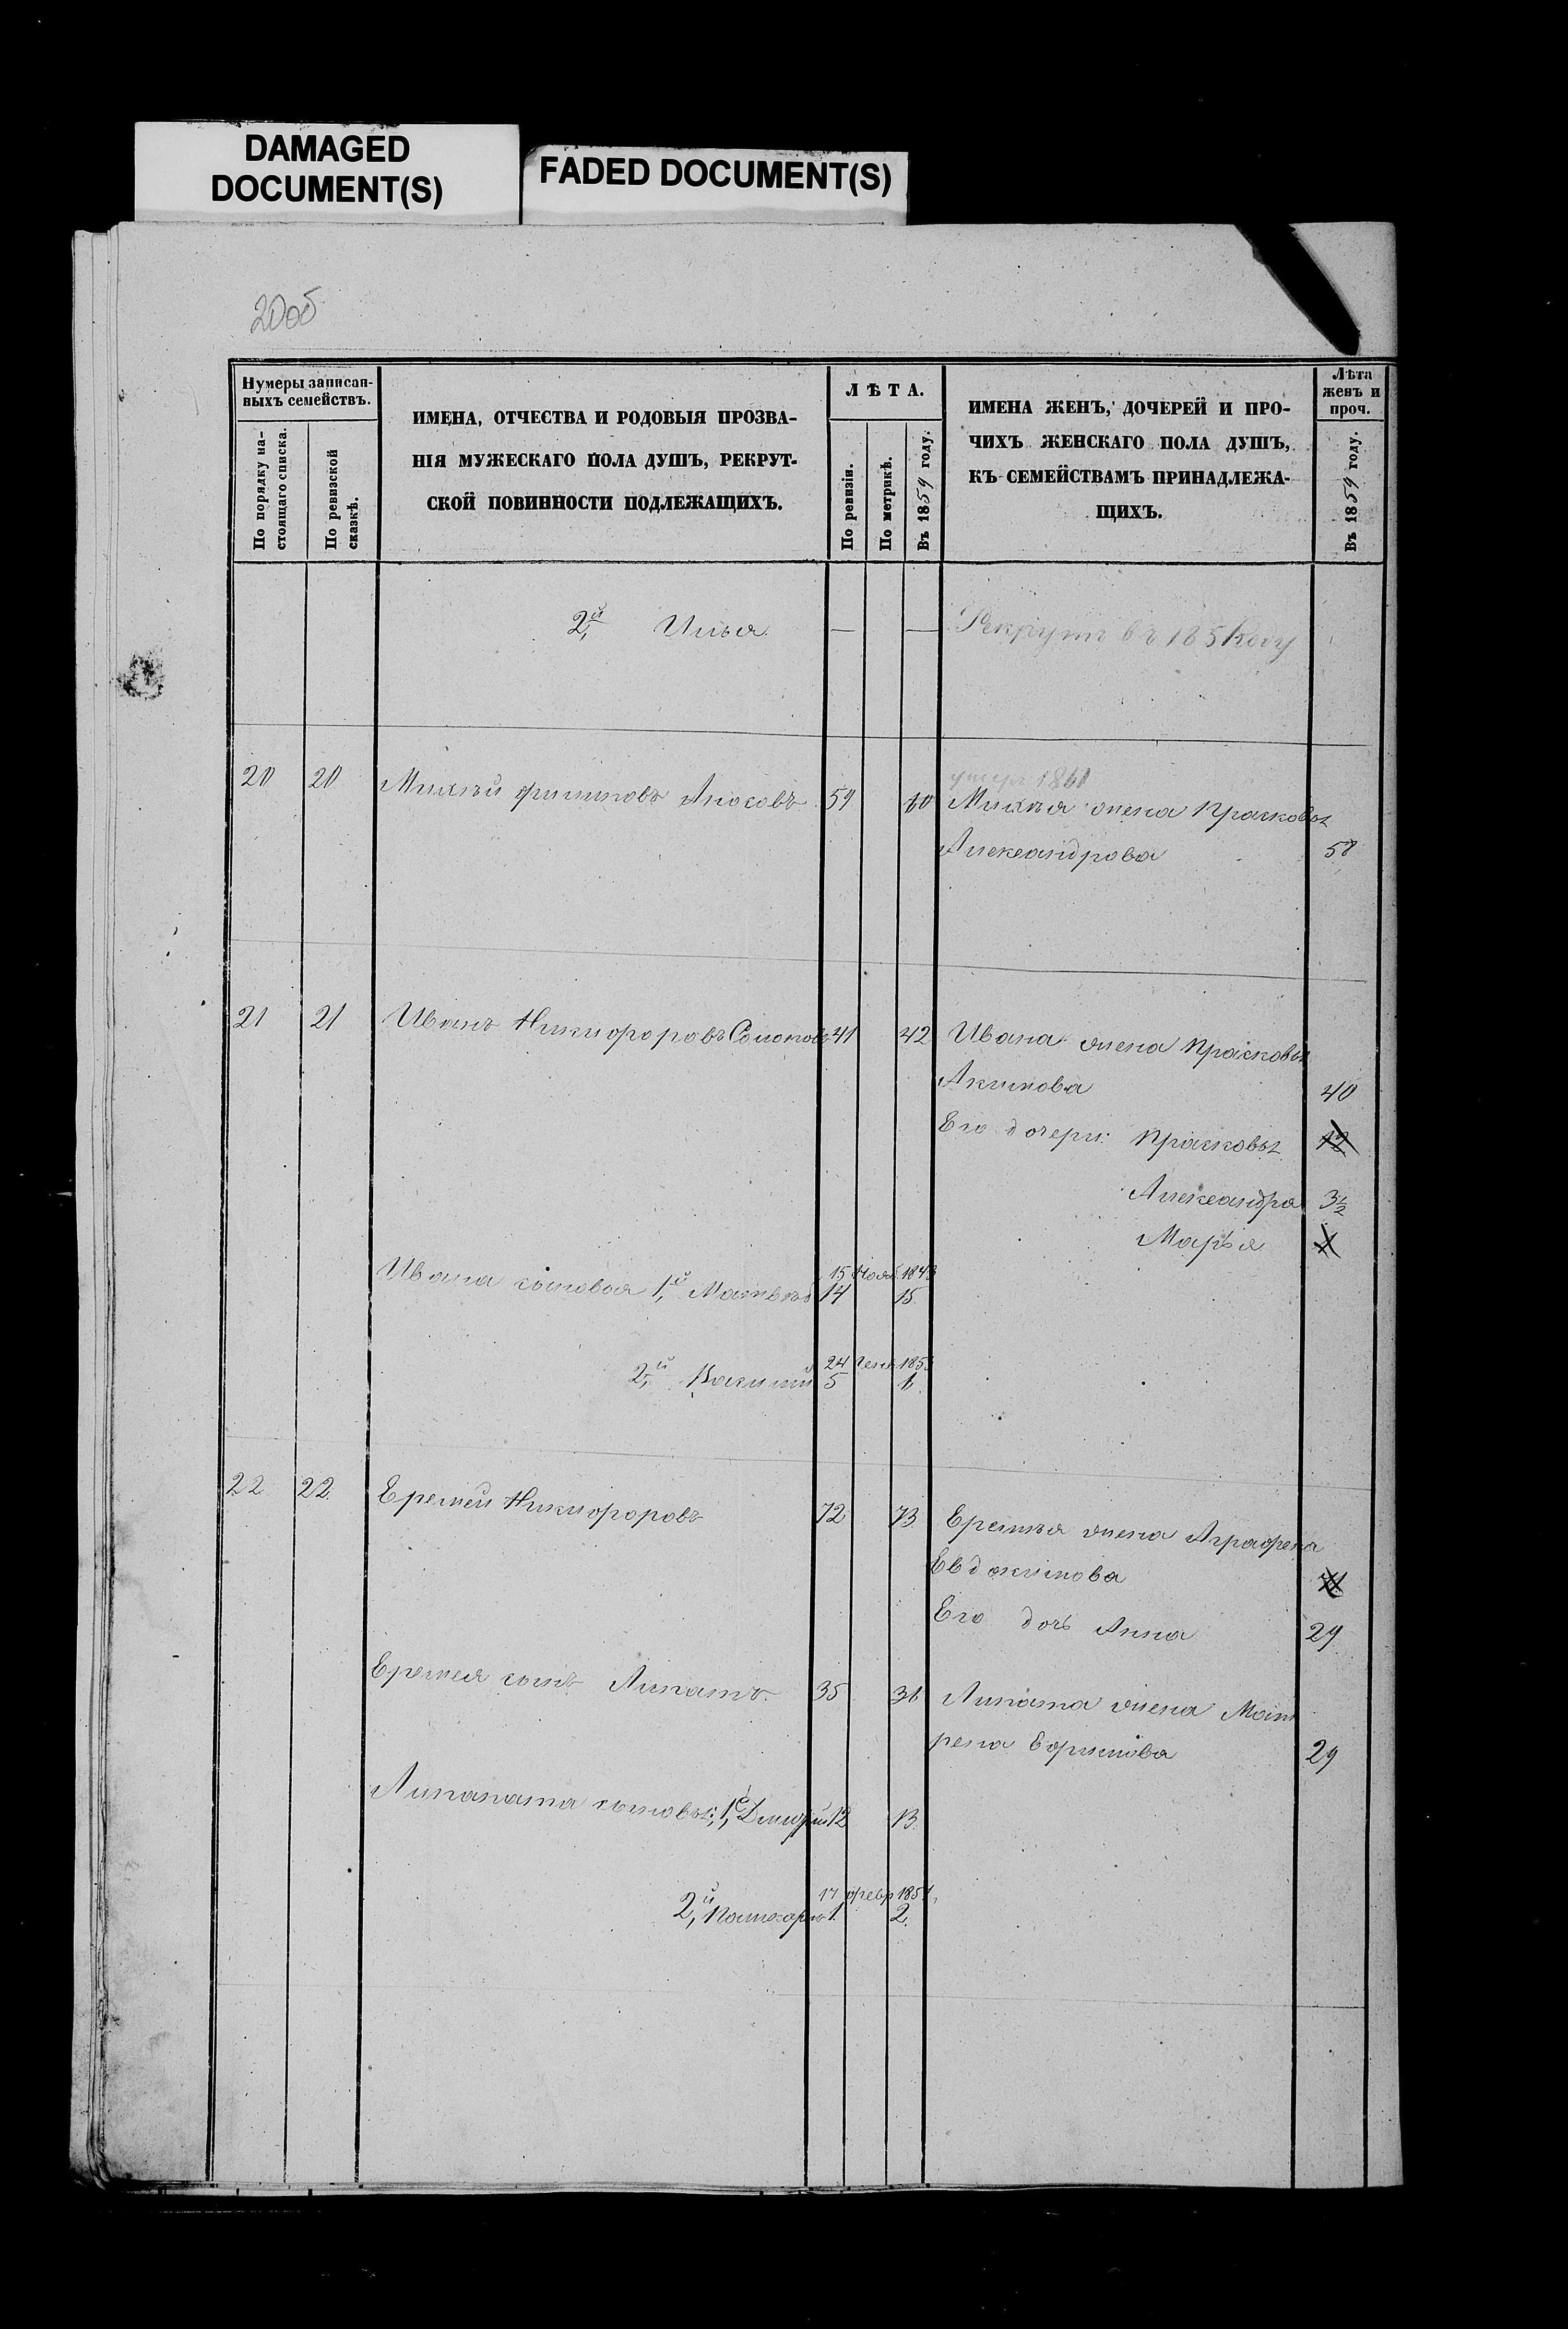 DAMAGED
DOCUMENT(S)
FADED DOCUMENT(S)
20об
Нумеры записан-
ныхъ семействъ.
По порядку на-
стоящаго списка.
По ревизской
сказкѣ.
ИМЕНА, ОТЧЕСТВА И РОДОВЫЯ ПРОЗВА-
НІЯ МУЖЕСКАГО ПОЛА ДУШЪ, РЕКРУТ-
СКОЙ ПОВИННОСТИ ПОДЛЕЖАЩИХЪ.
ЛѢТА.
По ревизіи.
По метрикѣ.
Въ 1859 году.
ИМЕНА ЖЕНЪ, ДОЧЕРЕЙ И ПРО-
ЧИХЪ ЖЕНСКАГО ПОЛА ДУШЪ,
КЪ СЕМЕЙСТВАМЪ ПРИНАДЛЕЖА-
ЩИХЪ.
Лѣта
женъ и
проч.
Въ 1859 году.
2й Илья — — Рекрутъ въ 185 году
умеръ 1861
20 20 Михѣй Филиповъ 59 60 Михѣя жена Прасковья
Александрова 58
21 21 Иванъ Никифоровъ 41 42 Ивана жена Прасковья
Акимова 40
Его дочери: Прасковья
Александра 3½
Марья
15 Нояб. 1843
Ивана сыновья 1й Матвѣй 14 15
24 Генв. 185
2й 5 6
22 22 Еремей Никифоровъ 72 73 Еремѣя жена Аграфена
Евдокимова
Его дочь Анна 29
Еремея сынъ Липатъ 35 36 Липата жена Мат
рена Ефимова 29
Липата сыновья: 1й Дмитрій 12 13
17 февр. 185
2й 1 2